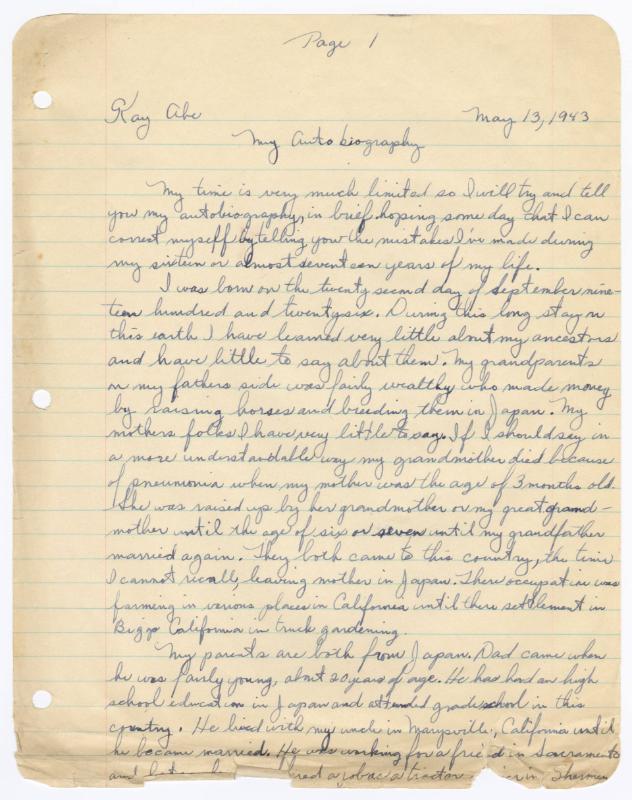 Page 1
Kay Abe
May 13, 1943
My Autobiography
My time is very much limited so I will try and tell
you my autobiography, in brief hoping some day that I can
correct myself by telling you the mistakes I've made during
my sixteen or almost seventeen years of my life.
I was born on the twenty second day of september nine-
teen hundred and twentysix. During this long stay on
this earth I have learned very little about my ancestors
and have little to say about them. My grandparents
on my fathers side was fairly wealthy who made money
by raising horses and breeding them in Japan. My
mothers folks I have very little to say. If I should say in
a more understandable way my grandmother died because
of pneumonia when my mother was the age of 3 months old.
She was raised up by her grandmother or my great grand-
mother until the age of six or seven until my grandfather
married again. They both came to this country, the time
I cannot recall, leaving mother in Japan. There occupation was
farming in verious places in California until there settlement in
Biggs California in truck gardening.
My parents are both from Japan. Dad came when
he was fairly young, about 20 years of age. He has had an high
school education in Japan and attended grade school in this
country. He lived with my uncle in Marysville, California until
he became married. He was working for a friend in Sacramento
and a job as a tractor in Sherman